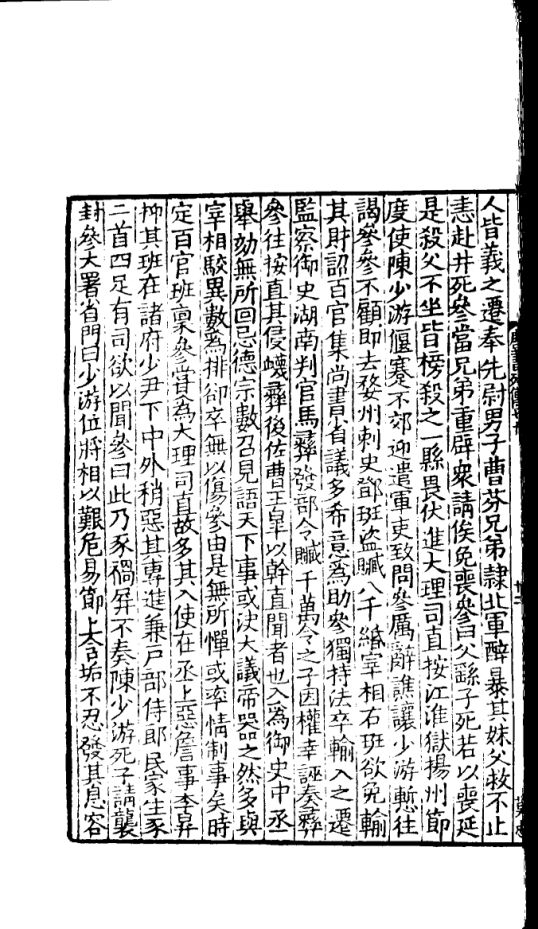 人皆義之遷奉先尉男子曹芬兄弟隷北軍醉暴其妹父救不止
恚赴井死參當兄弟重辟衆請俟免喪參曰父繇子死若以喪延
是殺父不坐皆榜殺之一縣畏伏進大理司直按江淮獄揚州節
度使陳少游偃蹇不郊迎遣軍吏致問參厲辭譙讓少游慙往
謁參參不顧即去婺州刺史鄧珽盜贓八千緡宰相右珽欲免輸
其財詔百官集尚書省議多希意爲助參獨持法卒輸入之遷
監察御史湖南判官馬彝發部令贓千萬令之子因權幸誣奏彝
參往按直其侵蠛彝後佐曹王臯以幹直聞者也入爲御史中丞
舉劾無所回忌德宗數召見語天下事或決大議帝器之然多與
宰相駮異數爲排卻卒無以傷參由是無所憚或率情制事矣時
定百官班稟參嘗爲大理司直故多其入使在丞上惡詹事李昇
抑其班在諸府少尹下中外稍惡其專進兼戸部侍郎民家生豕
二首四足有司欲以聞參曰此乃豕禍屏不奏陳少游死子請襲
封參大署省門曰少游位將相以艱危易節上含垢不忍發其息容